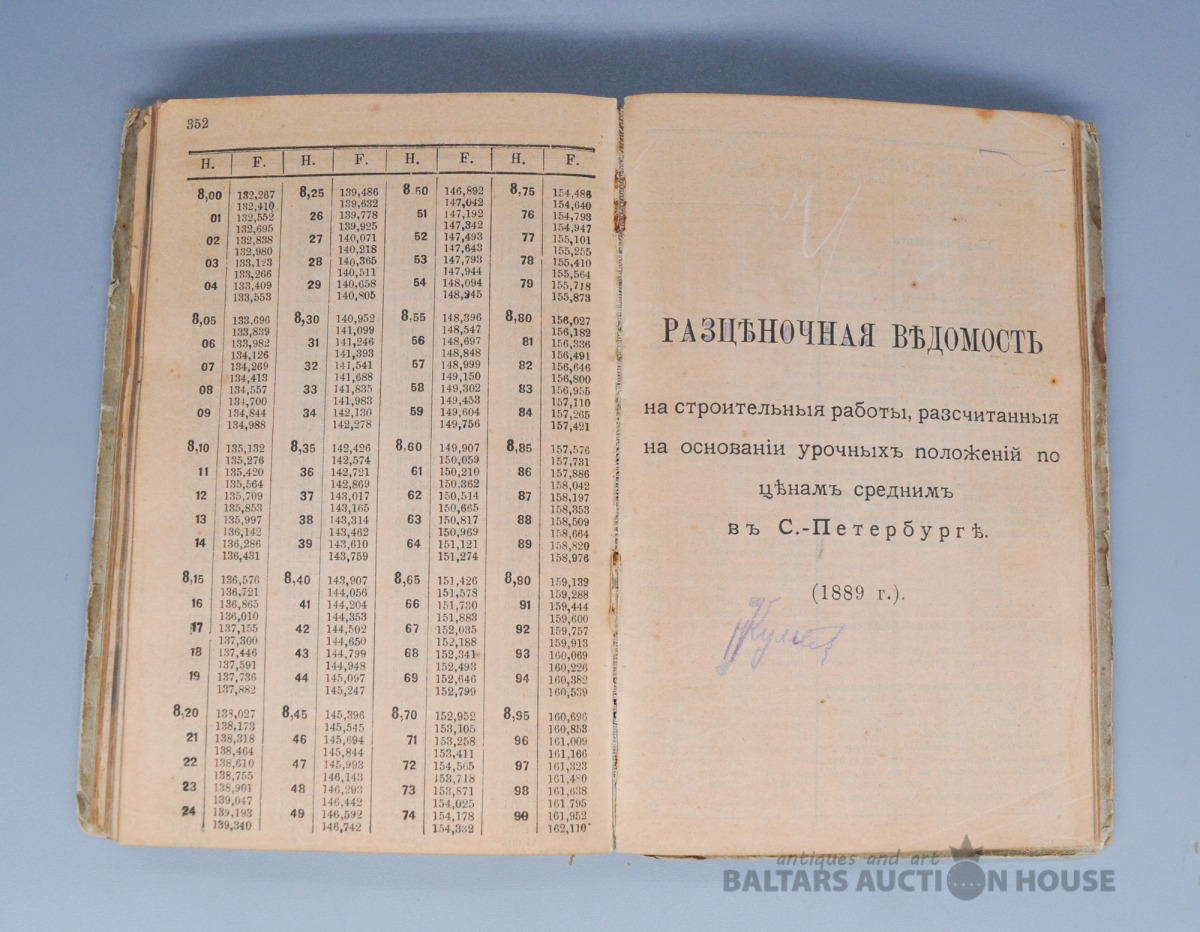 352
H. F. H. F. H. F. H. F.
8,00 132,267 8,25 139,486 8 50 146,892 8,75 154,486
132,410 139,632 147,042 154,640
01 132,552 26 139,778 51 147,192 76 154,793
132,695 139,925 147,342 154,947
02 132,838 27 140,071 52 147,493 77 155,101
132,980 140,218 147,643 155,255
03 133,123 28 140,365 53 147,793 78 155,410
133,266 140,511 147,944 155,564
04 133,409 29 140,658 54 148,094 79 155,718
133,553 140,805 148,245 155,873
8,05 133,696 8,30 140,952 8,55 148,396 8,80 156,027
133,839 141,099 148,547 156,182
06 133,982 31 141,246 56 148,697 81 156,336
134,126 141,393 148,848 156,491
07 134,269 32 141,541 57 148,999 82 156,646
134,413 141,688 149,150 156,800
08 134,557 33 141,835 58 149,302 83 156,955
134,700 141,983 149,453 157,110
09 134,844 34 142,130 59 149,604 84 157,265
134,988 142,278 149,756 157,421
8,10 135,132 8,35 142,426 8,60 149,907 8,85 157,576
135,276 142,574 150,059 157,731
11 135,420 36 142,721 61 150,210 86 157,886
135,564 142,869 150,362 158,042
12 135,709 37 143,017 62 150,514 87 158,197
135,853 143,165 150,665 158,353
13 135,997 38 143,314 63 150,817 88 158,509
136,142 143,462 150,969 158,664
14 136,286 39 143,610 64 151,121 89 158,820
136,431 143,759 151,274 158,976
8,15 136,576 8,40 143,907 8,65 151,426 8,90 159,132
136,721 144,056 151,578 159,288
16 136,865 41 144,204 66 151,730 91 159,444
136,010 144,353 151,883 159,600
17 137,155 42 144,502 67 152,035 92 159,757
137,300 144,650 152,188 159,913
18 137,446 43 144,799 68 152,341 93 160,069
137,591 144,948 152,493 160,226
19 137,736 44 145,097 69 152,646 94 160,382
137,882 145,247 152,799 160,539
8,20 138,027 8,45 145,396 8,70 152,952 8,95 160,696
138,173 145,545 153,105 160,853
21 138,318 46 145,694 71 153,258 96 161,009
138,464 145,844 153,411 161,166
22 138,610 47 145,993 72 154,565 97 161,323
138,755 146,143 153,718 161,480
23 138,901 48 146,293 73 153,871 98 161,638
139,047 146,442 154,025 161,795
24 139,193 49 146,592 74 154,178 99 161,952
139,340 146,742 154,332 162,110
РАЗЦѢНОЧНАЯ ВѢДОМОСТЬ
на строительныя работы, разсчитанныя
на основаніи урочныхъ положеній по
цѣнамъ среднимъ
въ С.-Петербургѣ.
(1889 г.).
antiques and art
BALTARS AUCTION HOUSE